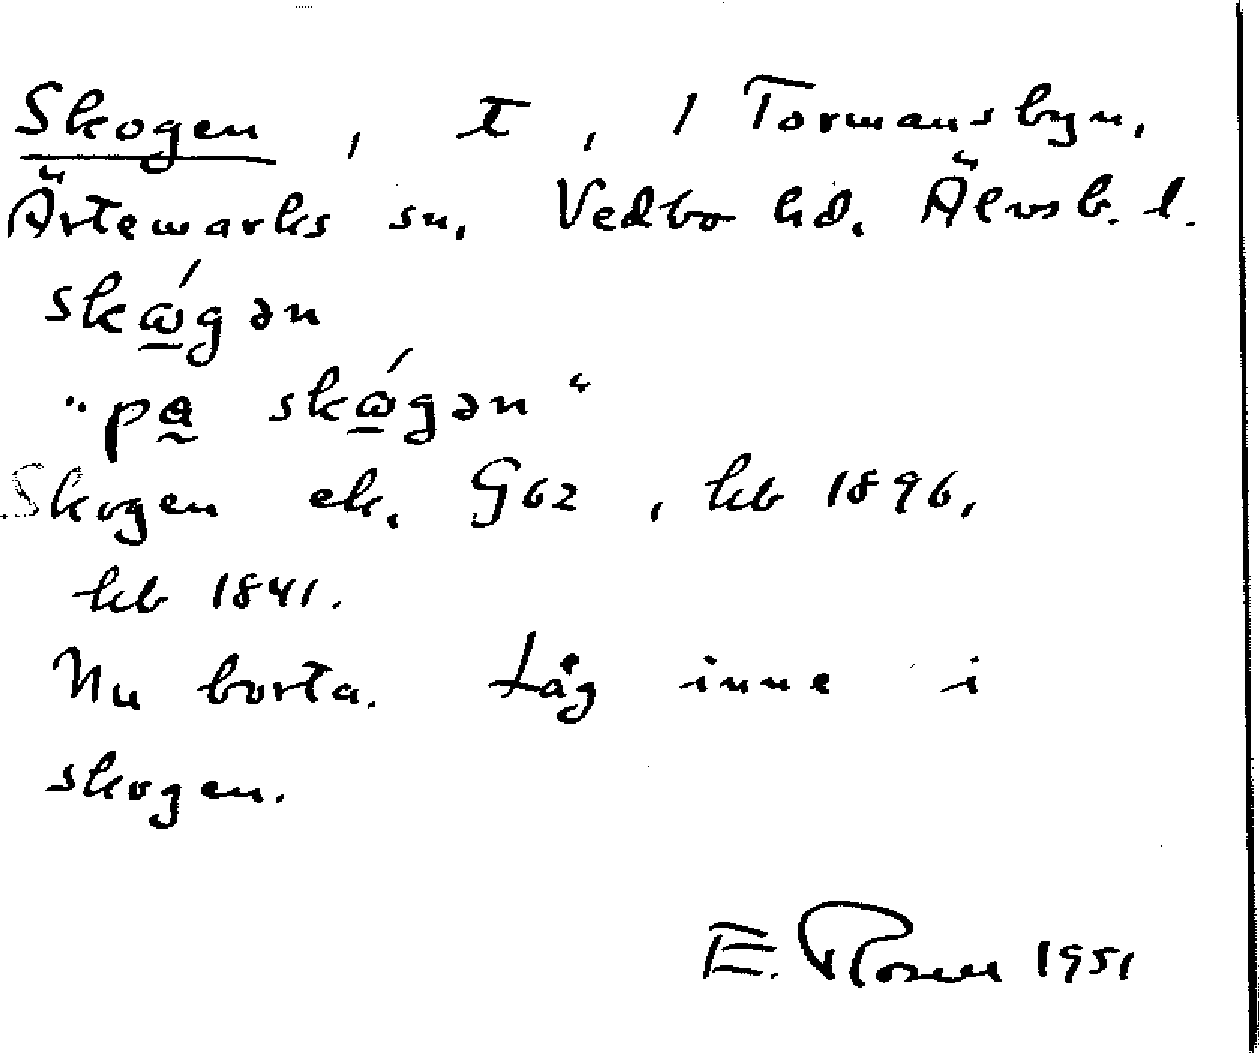 Skogen, t, 1 Tormansbyn,
Ärtemarks sn, Vedbo hd, Älvsb. l.
skώgən
"pa skώgən"
Skogen ek. G62, hb 1896,
hb 1841.
Nu borta. Låg inne i
skogen.
E. Rosell 1951